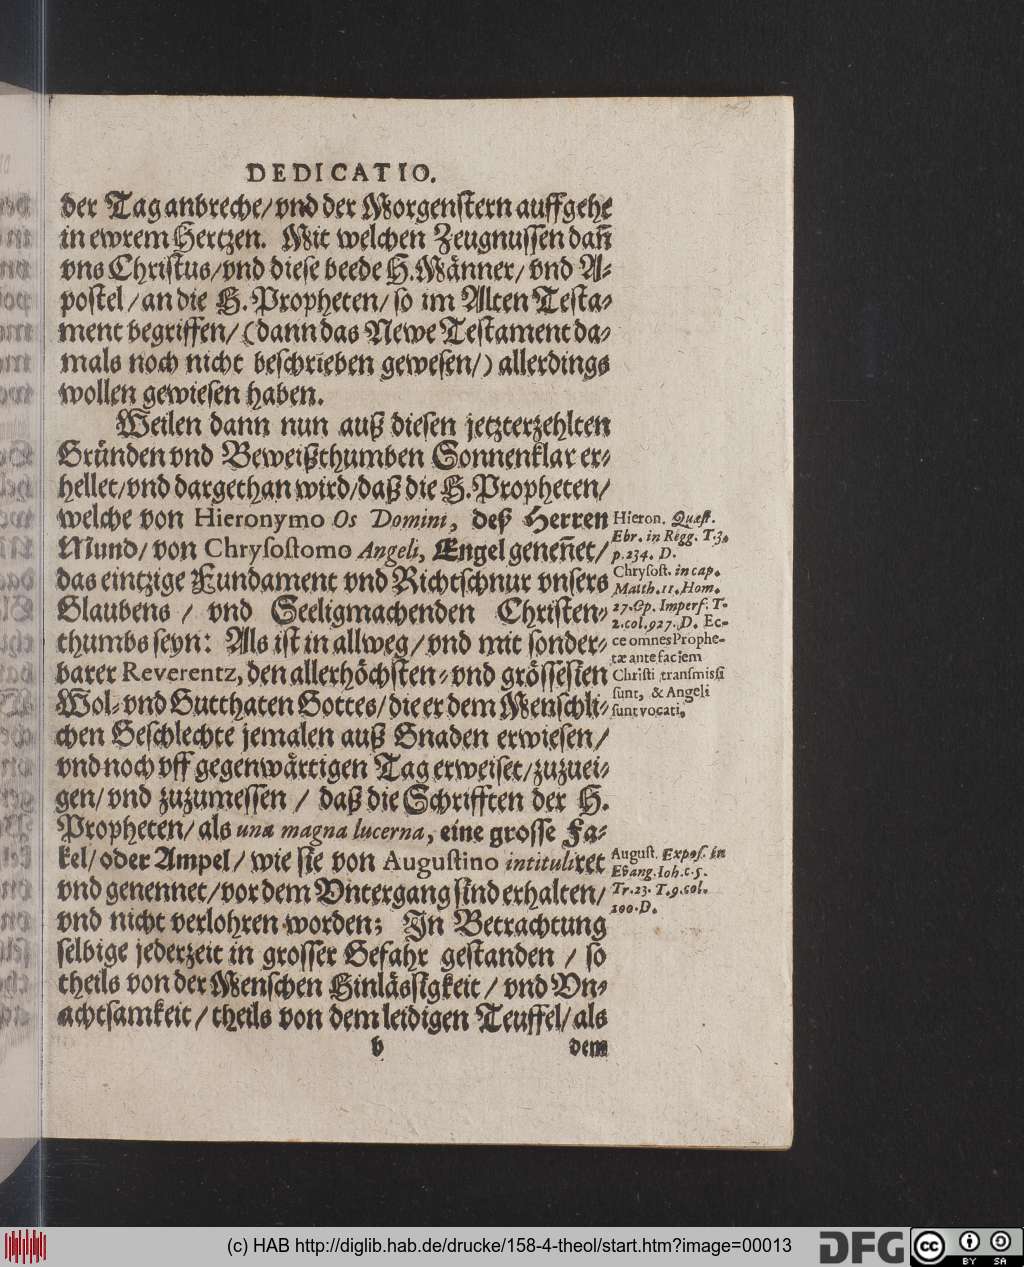 DEDICATIO.
der Tag anbreche/ vnd der Morgenstern auffgehe
in ewrem Hertzen. Mit welchen Zeugnussen dañ
vns Christus/ vnd diese beede H. Männer/ vnd A-
postel/ an die H. Propheten/ so im Alten Testa-
ment begriffen/ (dann das Newe Testament da-
mals noch nicht beschrieben gewesen/) allerdings
wollen gewiesen haben.
Weilen dann nun auß diesen jetzterzehlten
Gründen vnd Beweißthumben Sonnenklar er-
hellet/ vnd dargethan wird/ daß die H. Propheten/
welche von Hieronymo Os Domini, deß Herren
Mund/ von Chrysostomo Angeli, Engel geneñet/
das eintzige Fundament vnd Richtschnur vnsers
Glaubens / vnd Seeligmachenden Christen-
thumbs seyn: Als ist in allweg/ vnd mit sonder-
barer Reverentz, den allerhöchsten- vnd grössesten
Wol- vnd Gutthaten Gottes/ die er dem Menschli-
chen Geschlechte jemalen auß Gnaden erwiesen/
vnd noch vff gegenwärtigen Tag erweiset/ zuzuei-
gen/ vnd zuzumessen / daß die Schrifften der H.
Propheten/ als una magna lucerna, eine grosse Fa-
kel/ oder Ampel/ wie sie von Augustino intituliret
vnd genennet/ vor dem Vntergang sind erhalten/
vnd nicht verlohren worden; In Betrachtung
selbige jederzeit in grosser Gefahr gestanden / so
theils von der Menschen Hinlässigkeit / vnd Vn-
achtsamkeit / theils von dem leidigen Teuffel/ als
b dem
Hieron. Quæst.
Ebr. in Regg. T.3.
p.234. D.
Chrysost. in cap.
Matth.11. Hom.
27. Op. Imperf. T.
2. col.927. D. Ec-
ce omnes Prophe-
tæ ante faciem
Christi transmissi
sunt, & Angeli
sunt vocati.
August. Expos. in
Evang. Ioh. c.5.
Tr.23. T.9. col.
200. D.
(c) HAB http://diglib.hab.de/drucke/158-4-theol/start.htm?image=00013
DFG
cc
BY SA